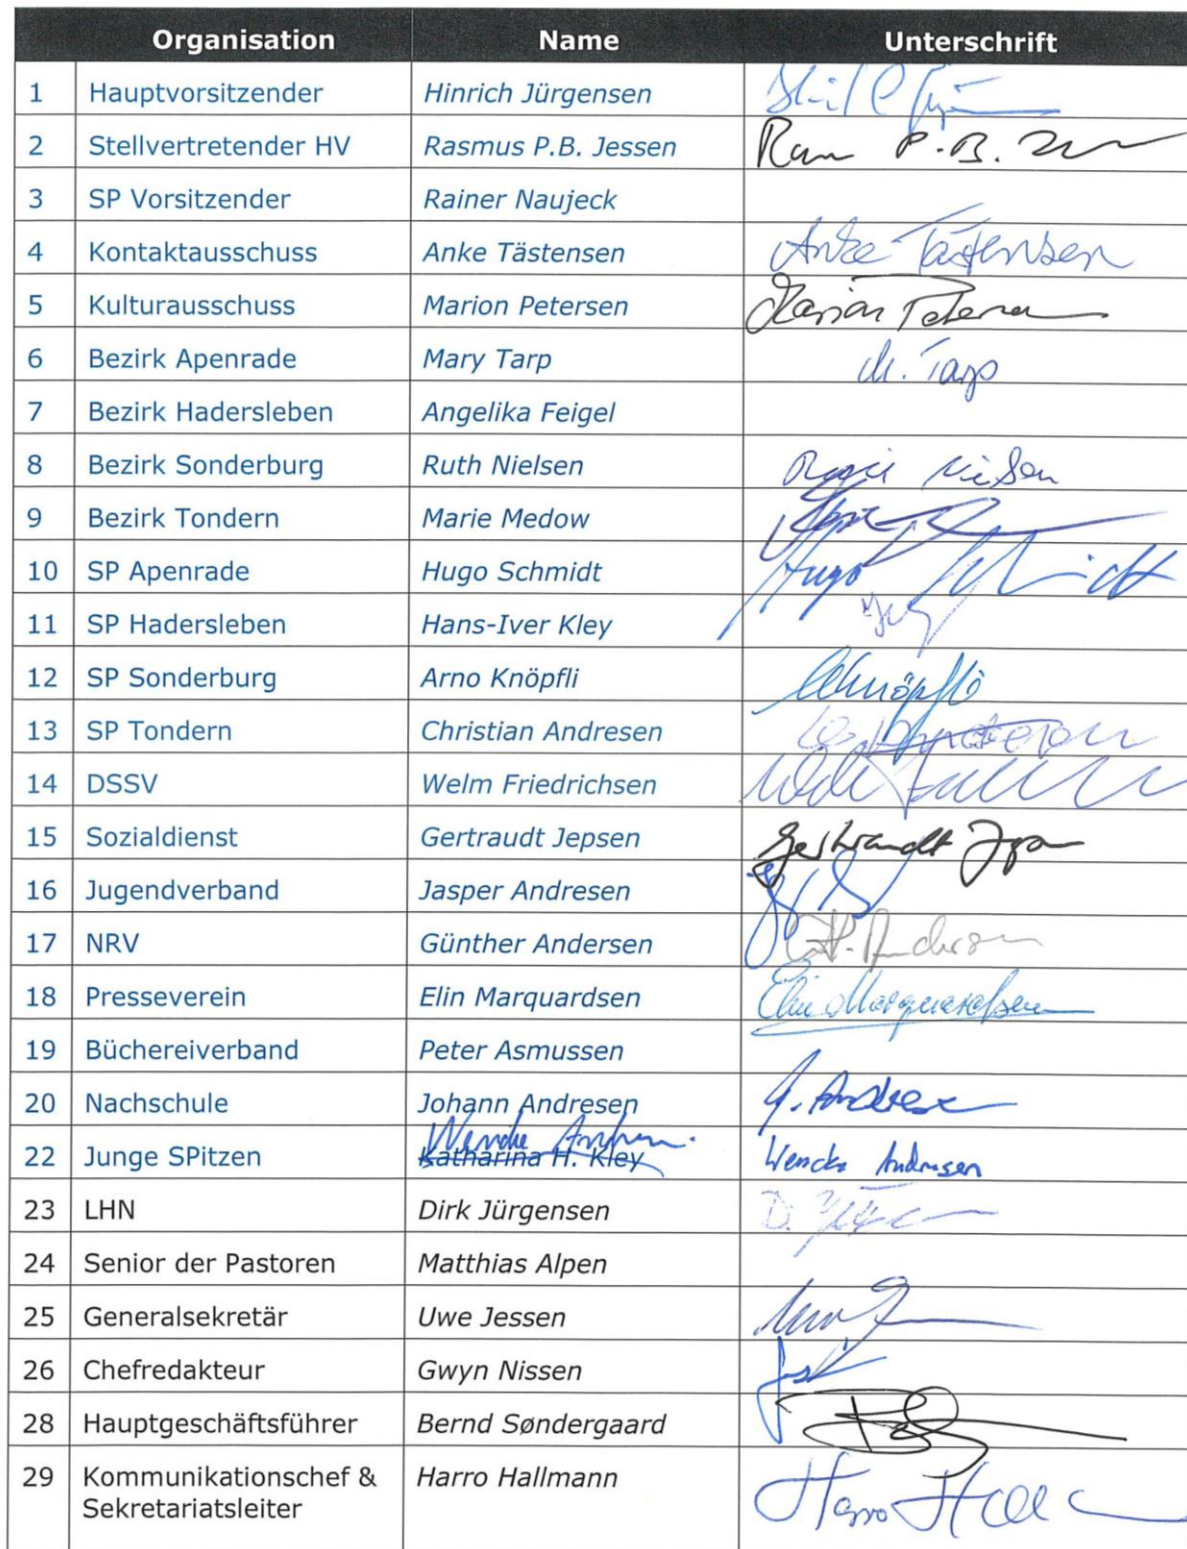 Organisation Name Unterschrift
1 Hauptvorsitzender Hinrich Jürgensen
2 Stellvertretender HV Rasmus P.B. Jessen P.B.
3 SP Vorsitzender Rainer Naujeck
4 Kontaktausschuss Anke Tästensen Anke Tästensen
5 Kulturausschuss Marion Petersen Marion Petersen
6 Bezirk Apenrade Mary Tarp M. Tarp
7 Bezirk Hadersleben Angelika Feigel
8 Bezirk Sonderburg Ruth Nielsen
9 Bezirk Tondern Marie Medow
10 SP Apenrade Hugo Schmidt Hugo Schmidt
11 SP Hadersleben Hans-Iver Kley
12 SP Sonderburg Arno Knöpfli AKnöpfli
13 SP Tondern Christian Andresen
14 DSSV Welm Friedrichsen
15 Sozialdienst Gertraudt Jepsen Gertraudt
16 Jugendverband Jasper Andresen
17 NRV Günther Andersen Andersen
18 Presseverein Elin Marquardsen Elin Marquardsen
19 Büchereiverband Peter Asmussen
20 Nachschule Johann Andresen
Wencke
22 Junge SPitzen Katharina H. Kley Wencke Andresen
23 LHN Dirk Jürgensen D.
24 Senior der Pastoren Matthias Alpen
25 Generalsekretär Uwe Jessen
26 Chefredakteur Gwyn Nissen
28 Hauptgeschäftsführer Bernd Søndergaard
29 Kommunikationschef & Harro Hallmann Harro
Sekretariatsleiter